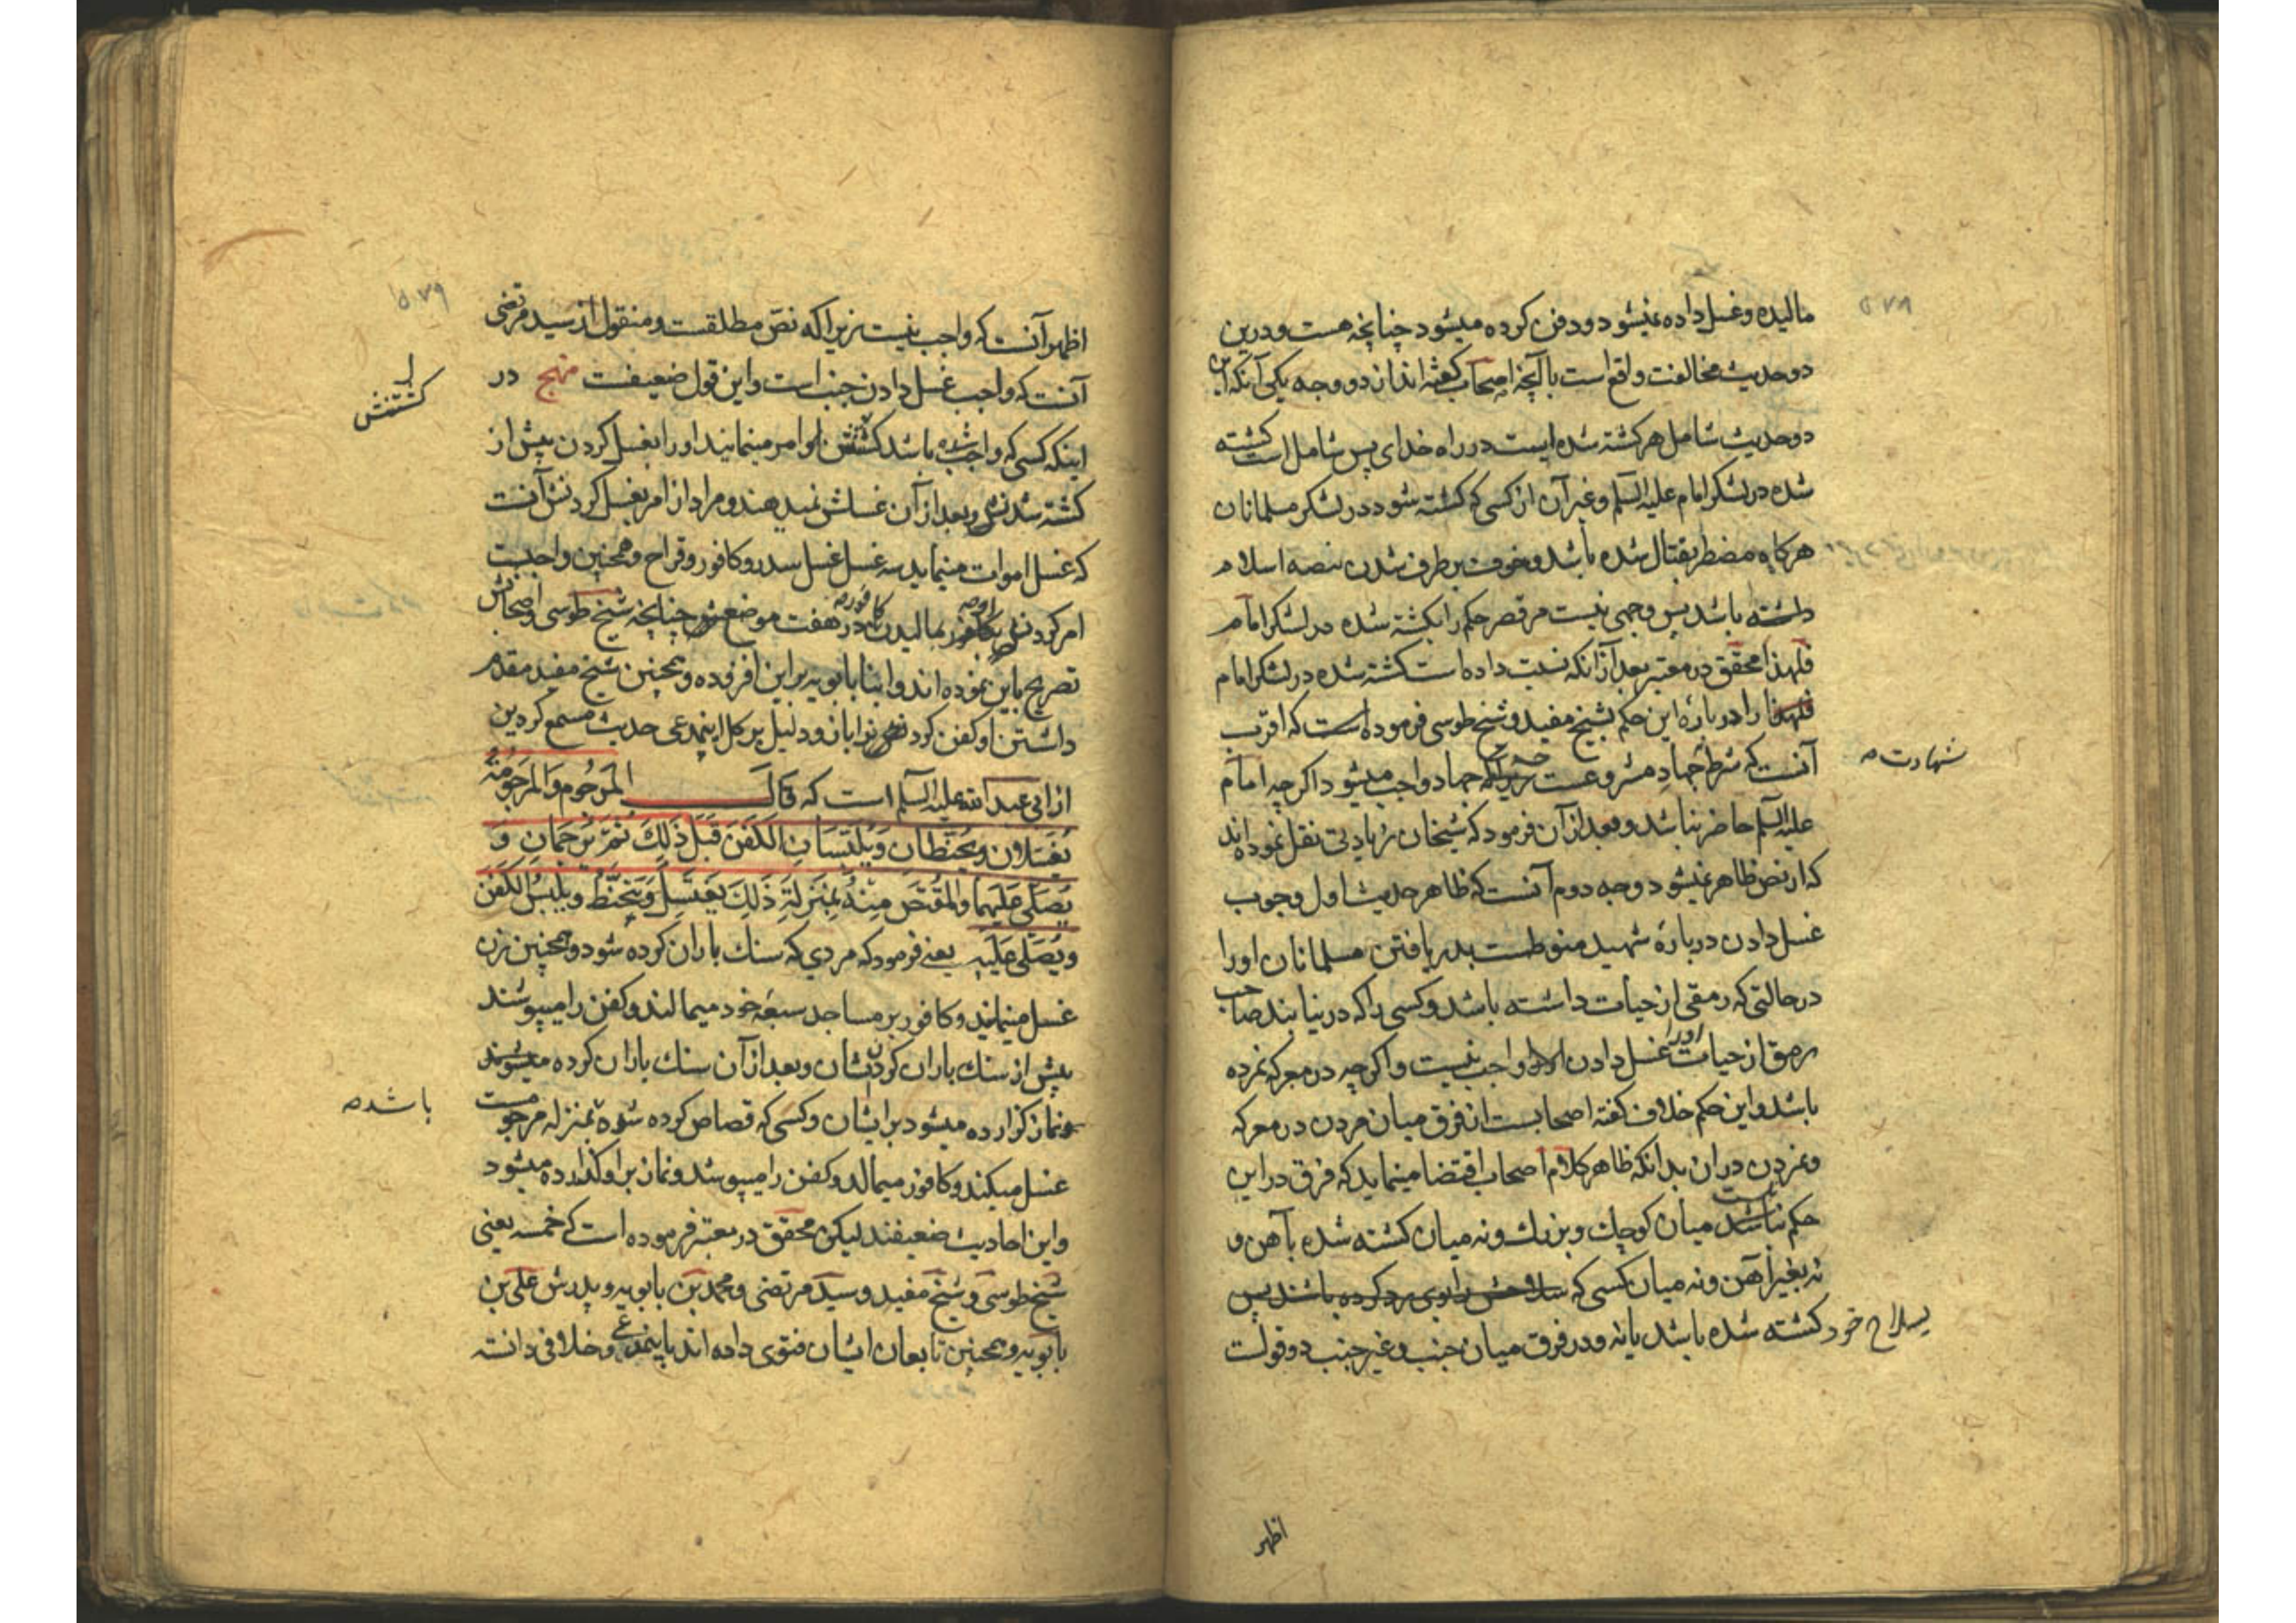 ۵۷۸
مالیده و غسل داده نمیشود و دفن کرده میشود چنانچه هست و درین
دو حدیث مخالفت واقع است با آنچه اصحاب گفته اند از دو وجه یکی آنکه این
دو حدیث شامل هر کشته شده ایست در راه خدای پس شامل است کشته
شده در لشکر امام علیه السلم و غیر آن از کسی که کشته شود در لشکر مسلمانان
هرکاه مضطر بقتال شده باشد و خوف برطرف شدن بیضه اسلام
داشته باشد پس وجهی نیست مر قصر حکم را بکشته شده در لشکر امام
فلهذا محقق در معتبر بعد از آنکه نسبت داده است کشته شده در لشکر امام
را در بارهٔ این حکم بشیخ مفید و شیخ طوسی فرموده است که اقرب
آنست که شرط جهاد مشروعست چه جهاد واجب میشود اگرچه امام
شهادت صه
علیه السلم حاضر نباشد و بعد از آن فرمود که شیخان زیادتی نقل نموده اند
که از نص ظاهر نمیشود وجه دوم آنست که ظاهر حدیث اول وجوب
غسل دادن دربارهٔ شهید منوطست بدریافتن مسلمانان او را
در حالتی که رمقی از حیات داشته باشد و کسی را که در نیابند صاحب
رمق از حیات او را غسل دادن واجب نیست و اگرچه در معرکه نمرده
باشد و این حکم خلاف گفته اصحابست از فرق میان مردن در معرکه
و نمردن در ان بدانکه ظاهر کلام اصحاب اقتضا مینماید که فرق در این
حکم نیست میان کوچک و بزرک و نه میان کشته شده بآهن و
نه بغیر آهن و نه میان کسی که
بسلاح خود کشته شده باشد یا نه و در فرق میان جنب و غیر جنب دو قولست
اظهر
۵۷۹
اظهر آنست که واجب نیست زیرا که نص مطلقست و منقول از سید مرتضی
آنست که واجب غسل دادن جنب است و این قول ضعیفست منهج در
کشتنش
اینکه کسی که واجب شده باشد کشتنش امر مینمایند او را بغسل کردن پیش از
کشته شدنش و بعد از آن غسلش نمیدهند و مراد از امر بغسل کردنش آنست
که غسل اموات مینماید سه غسل غسل سدر و کافور و قراح و همچنین واجبست
امر کردن او بمالیدن کافور در هفت موضع چنانچه شیخ طوسی و اصحابش
تصریح باین نموده اند و ابنا بابویه بر این افزوده و همچنین شیخ مفید مقدم
داشتن او کفن کردن را بان و دلیل بر کل اینمدعی حدیث مسمع کردین
از ابی عبد الله علیه السلم است که قال المرجوم والمرجومة
یغتسلان ویحنطان ویلبسان الکفن قبل ذلک ثم یرجمان و
یصلی علیهما والمقتص منه بمنزلة ذلک یغتسل ویتحنط ویلبس الکفن
ویصلی علیه یعنی فرمود که مردی که سنک باران کرده شود و همچنین زن
غسل مینمایند و کافور بر مساجد سبعهٔ خود میمالند و کفن را میپوشند
پیش از سنک باران کردنشان و بعد از آن سنک باران کرده میشوند
و نماز کزارده میشود بر ایشان و کسی که قصاص کرده شود بمنزله مرجومست
باشد صه
غسل میکند و کافور میمالد و کفن را میپوشد و نماز بر او کذارده میشود
و این احادیث ضعیفند لیکن محقق در معتبر فرموده است که خمسه یعنی
شیخ طوسی و شیخ مفید و سید مرتضی و محمد بن بابویه و پدرش علی بن
بابویه و همچنین تابعان ایشان فتوی داده اند باینمدعی و خلافی دانسته